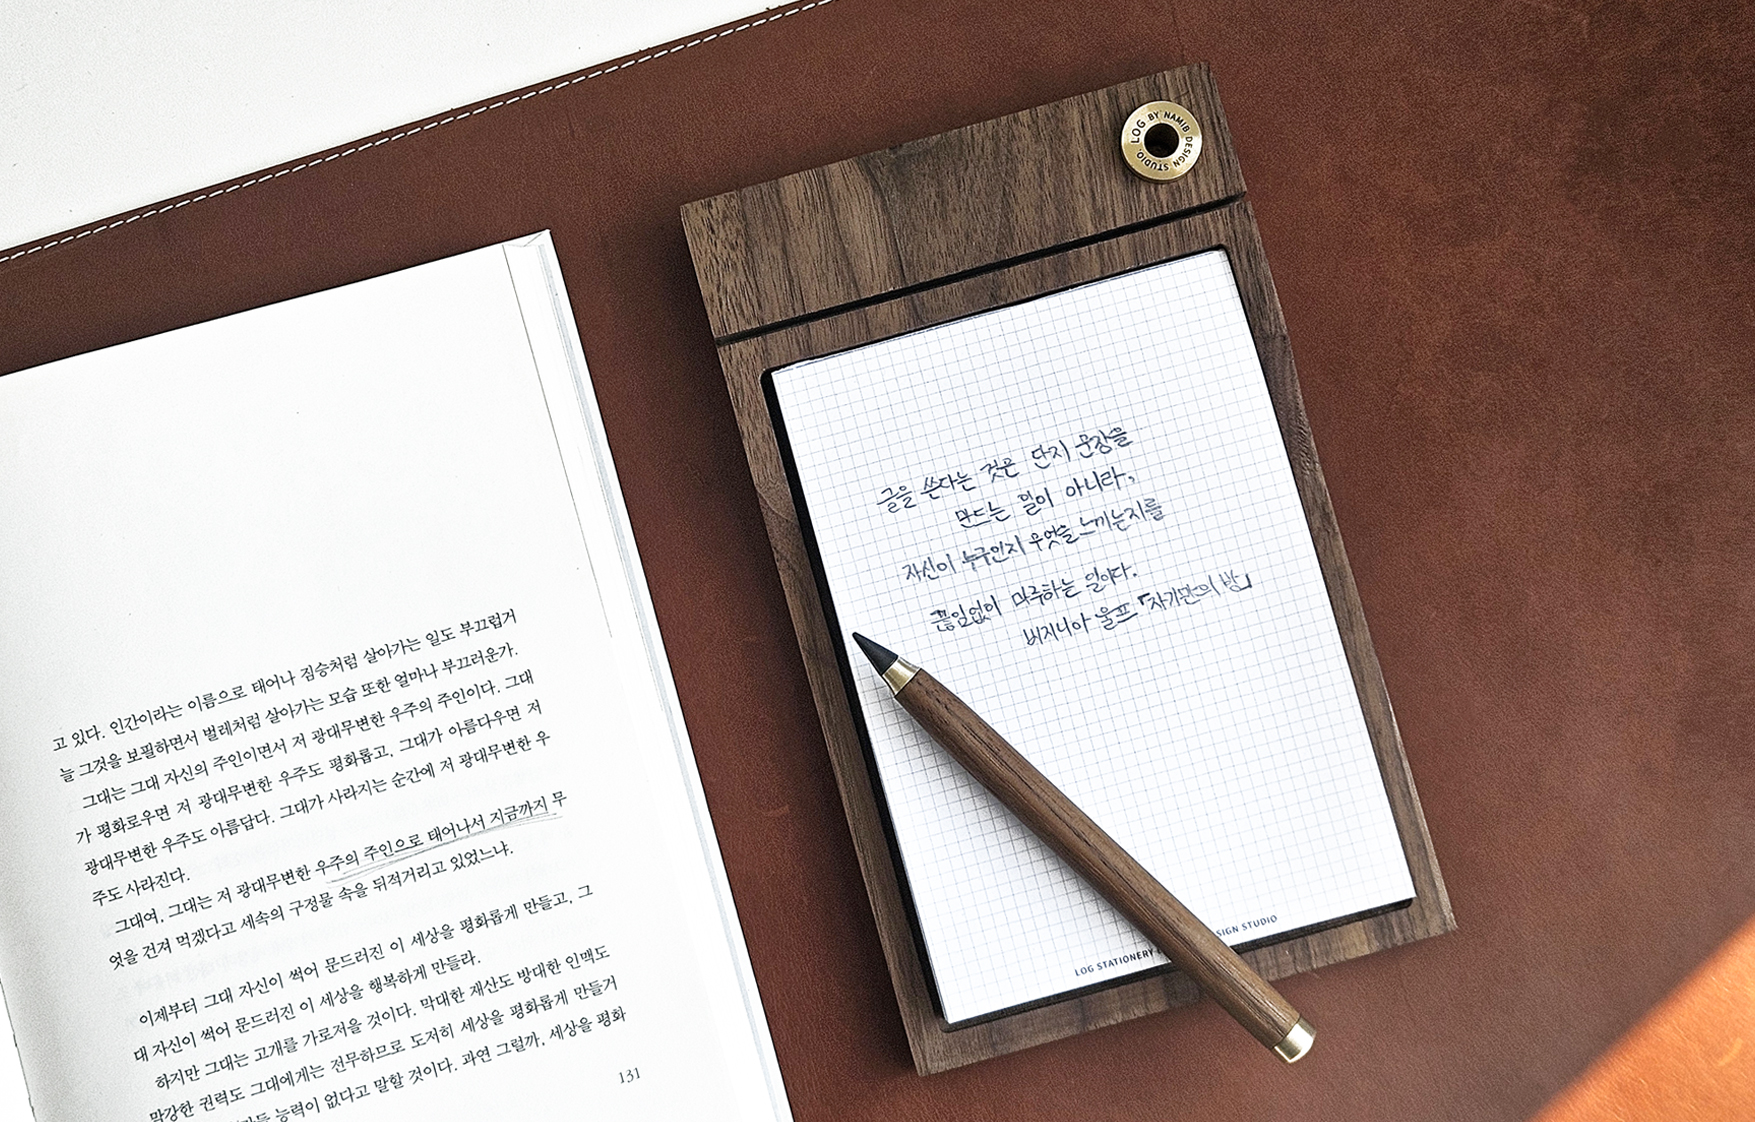 고 있다. 인간이라는 이름으로 태어나 짐승처럼 살아가는 일도 부끄럽거
늘 그것을 보필하면서 벌레처럼 살아가는 모습 또한 얼마나 부끄러운가.
그대는 그대 자신의 주인이면서 저 광대무변한 우주의 주인이다. 그대
가 평화로우면 저 광대무변한 우주도 평화롭고, 그대가 아름다우면 저
광대무변한 우주도 아름답다. 그대가 사라지는 순간에 저 광대무변한 우
주도 사라진다.
그대여, 그대는 저 광대무변한 우주의 주인으로 태어나서 지금까지 무
엇을 건져 먹겠다고 세속의 구정물 속을 뒤적거리고 있었느냐.
이제부터 그대 자신이 썩어 문드러진 이 세상을 평화롭게 만들고, 그
대 자신이 썩어 문드러진 이 세상을 행복하게 만들라.
하지만 그대는 고개를 가로저을 것이다. 막대한 재산도 방대한 인맥도
막강한 권력도 그대에게는 전무하므로 도저히 세상을 평화롭게 만들거
능력이 없다고 말할 것이다. 과연 그럴까, 세상을 평화
131
LOG BY NAMIB DESIGN STUDIO.
글을 쓴다는 것은 단지 문장을
만드는 일이 아니라,
자신이 누구인지 무엇을 느끼는지를
끊임없이 마주하는 일이다.
버지니아 울프 「자기만의 방」
LOG STATIONERY SIGN STUDIO